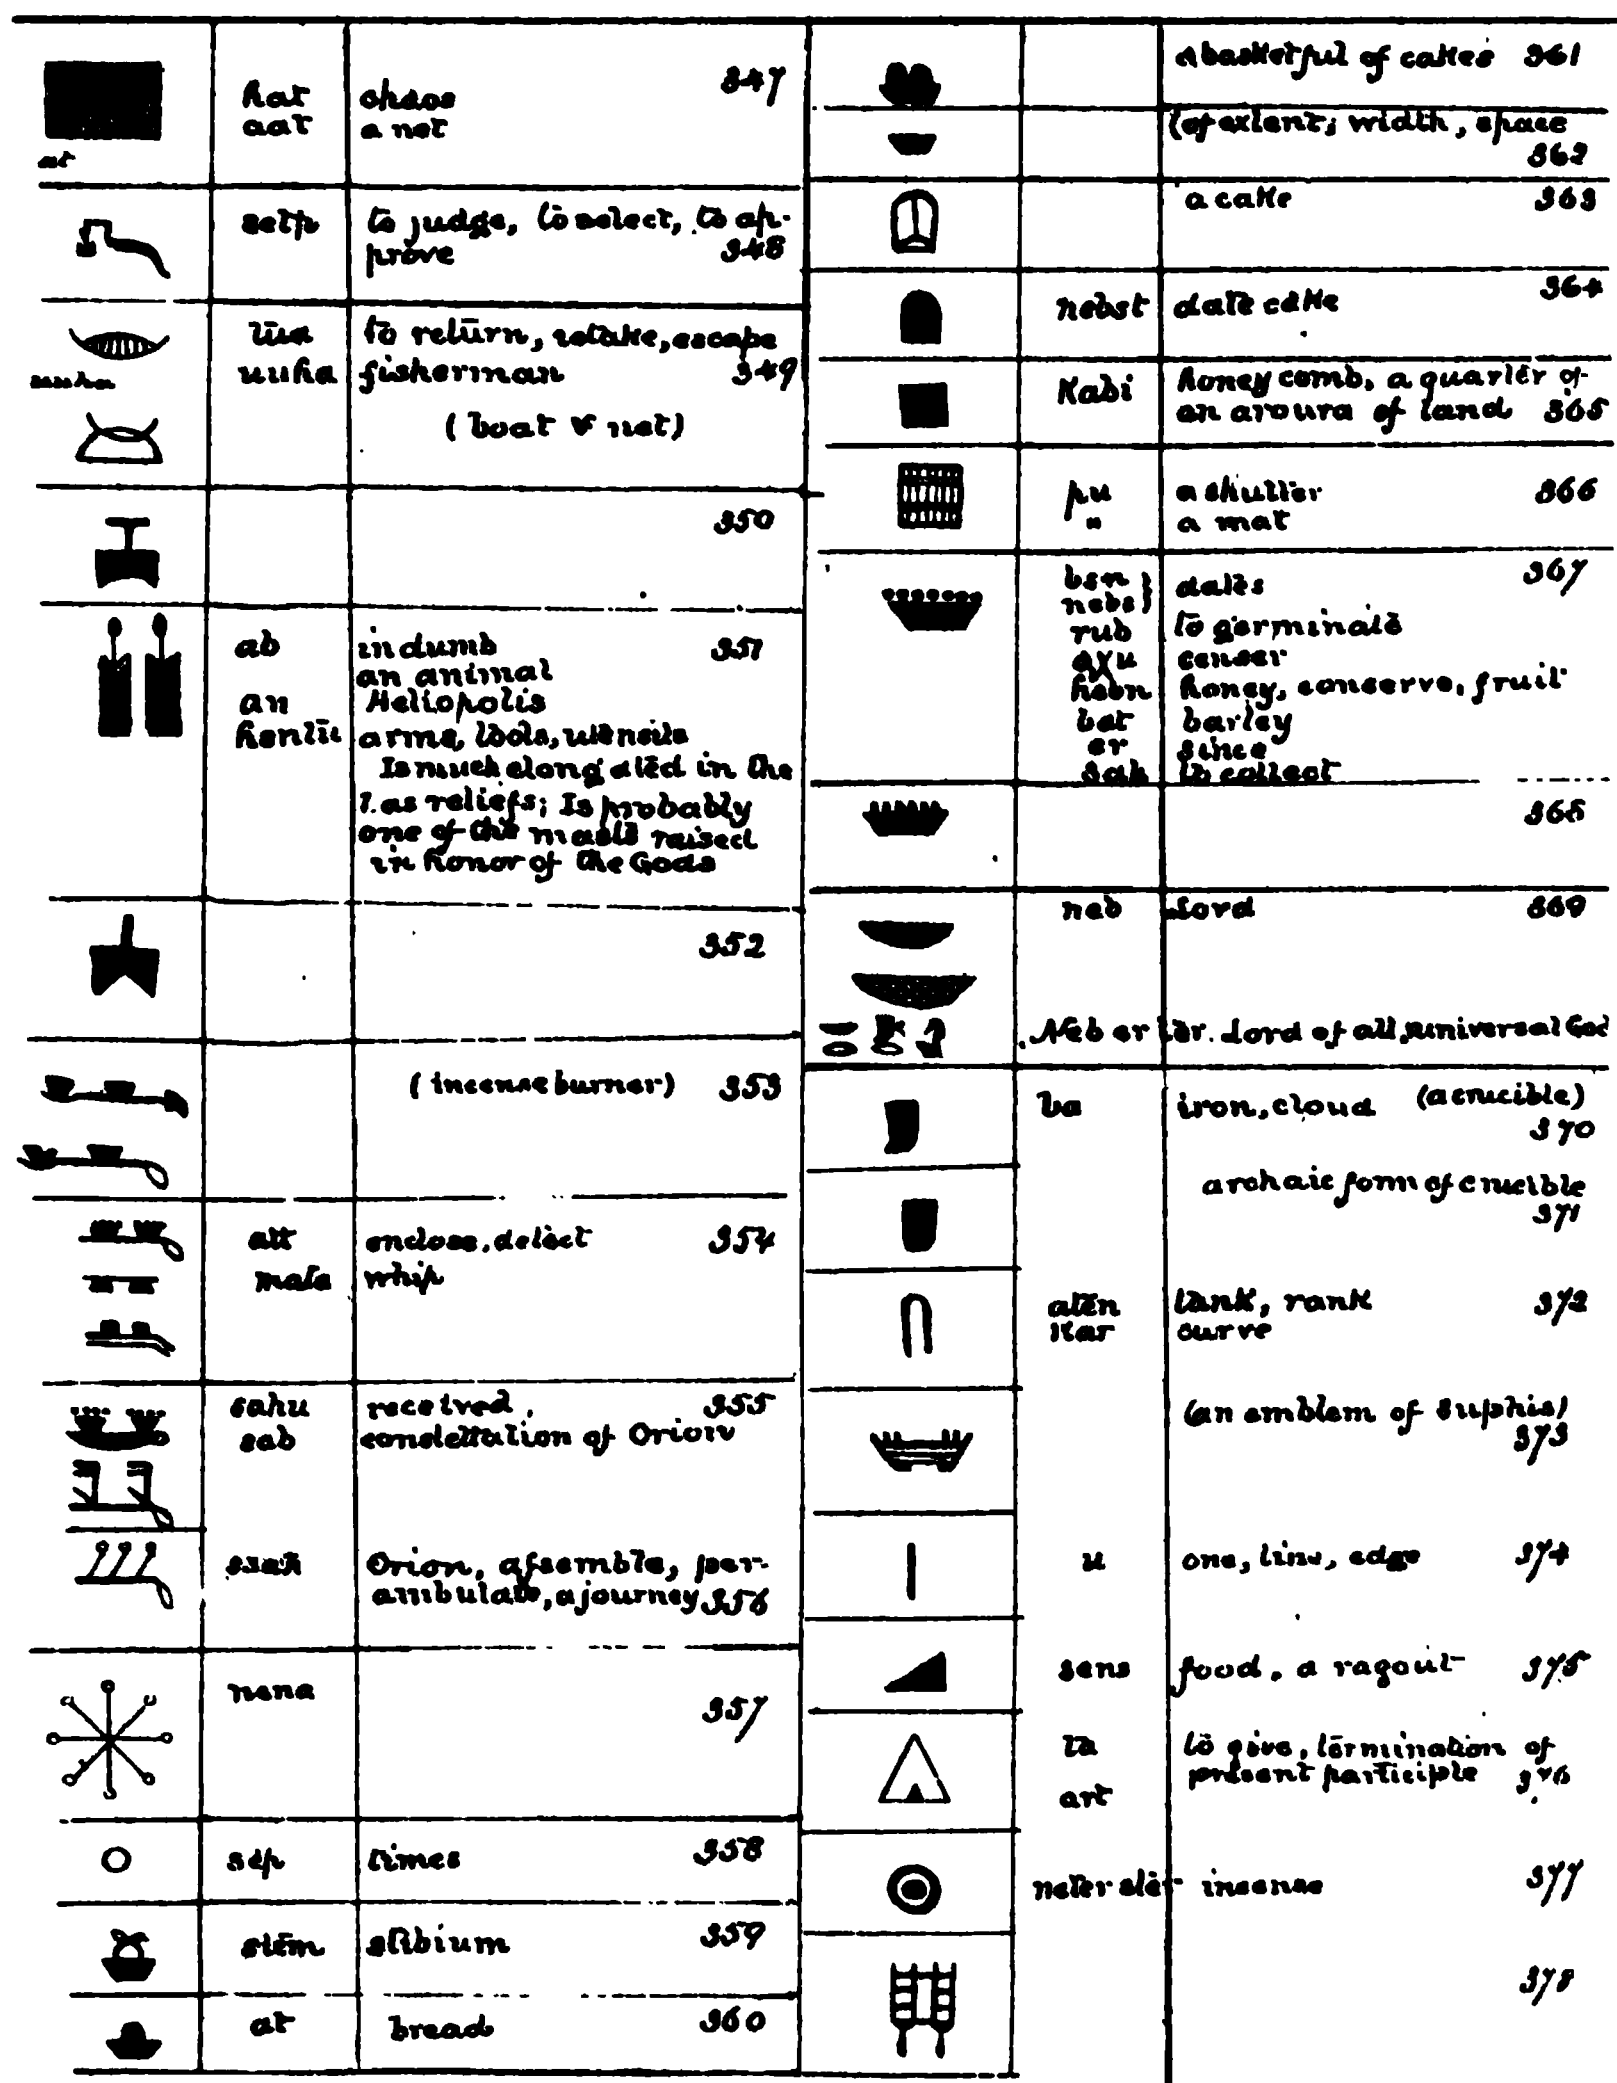 hat chaos 347
aat a net
at
setp to judge, to select, to ap-
prove 348
to return, retake, escape
uuha fisherman 349
(boat & net)
350
ab in dumb 351
an animal
an Heliopolis
hentu arms, tools, utensils
Is much elongated in the
as reliefs; Is probably
one of the masts raised
in honor of the Gods
352
(incense burner) 353
att enclose, detect 354
mata whip
sahu received, 355
sab constellation of Orion
Orion, assemble, per-
ambulate, a journey 356
nena 357
sep times 358
stem stibium 359
at bread 360
a basketful of cakes 361
(of extent; width, space
362
a cake 363
nebst date cake 364
Kabi honey comb, a quarter of
an aroura of land 365
pu a shutter 366
" a mat
bsn } dates 367
nebs }
rub to germinate
aχu censer
hebn honey, conserve, fruit
bat barley
er since
sah to collect
368
neb Lord 369
Neb er ter. Lord of all, universal God
ba iron, cloud (a crucible)
370
archaic form of crucible
371
aten tank, rank 372
Kar curve
(an emblem of Suphis)
373
u one, line, edge 374
sens food, a ragout 375
ta to give, termination of
present participle 376
art
neter incense 377
378